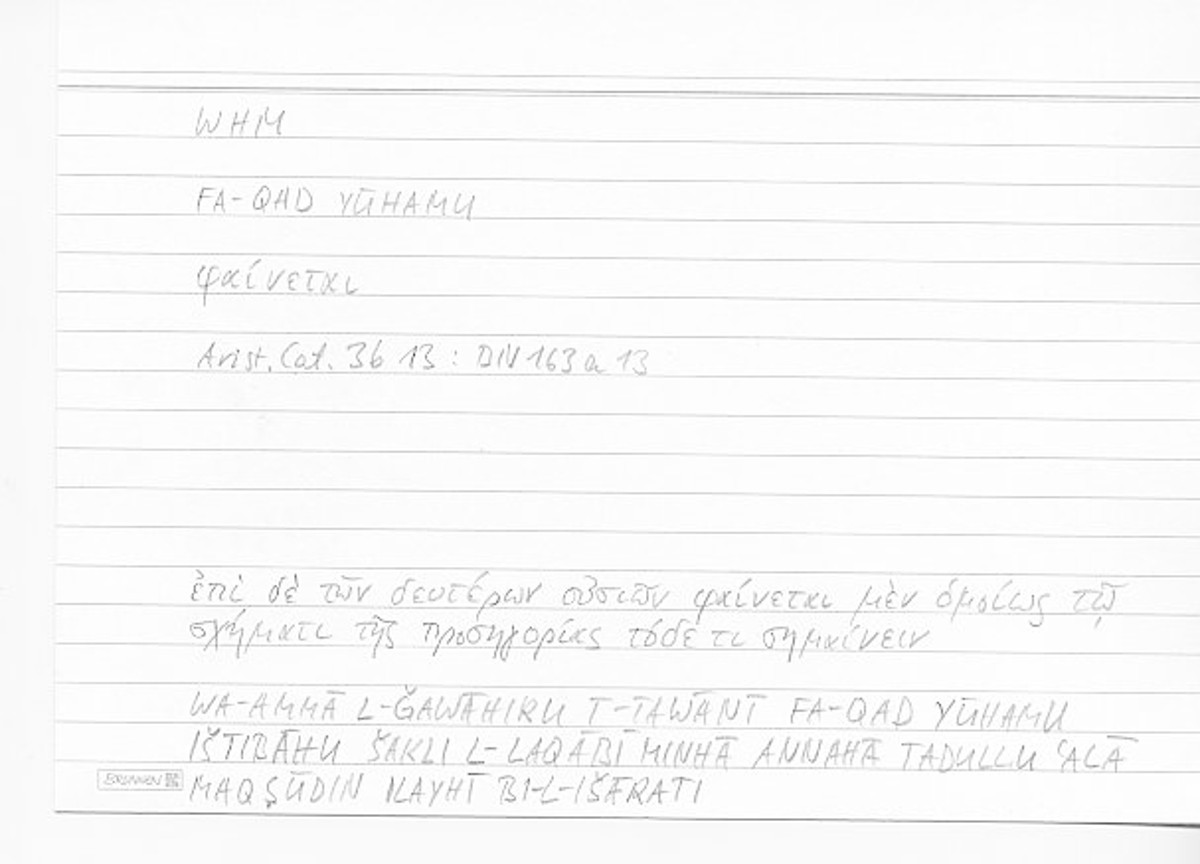 WHM
FA-QAD YŪHAMU
φαίνεται
Arist. Cat. 3b 13 : DIV 163a 13
ἐπὶ δὲ τῶν δευτέρων οὐσιῶν φαίνεται μὲν ὁμοίως τῷ
σχήματι τῆς προσηγορίας τόδε τι σημαίνειν
WA-AMMĀ L-ǦAWĀHIRU T-TAWĀNĪ FA-QAD YŪHAMU
IŠTIBĀHU ŠAKLI L-LAQĀBĪ MINHĀ ANNAHĀ TADULLU ʿALĀ
MAQṢŪDIN ILAYHĪ BI-L-IŠĀRATI
BRUNNEN